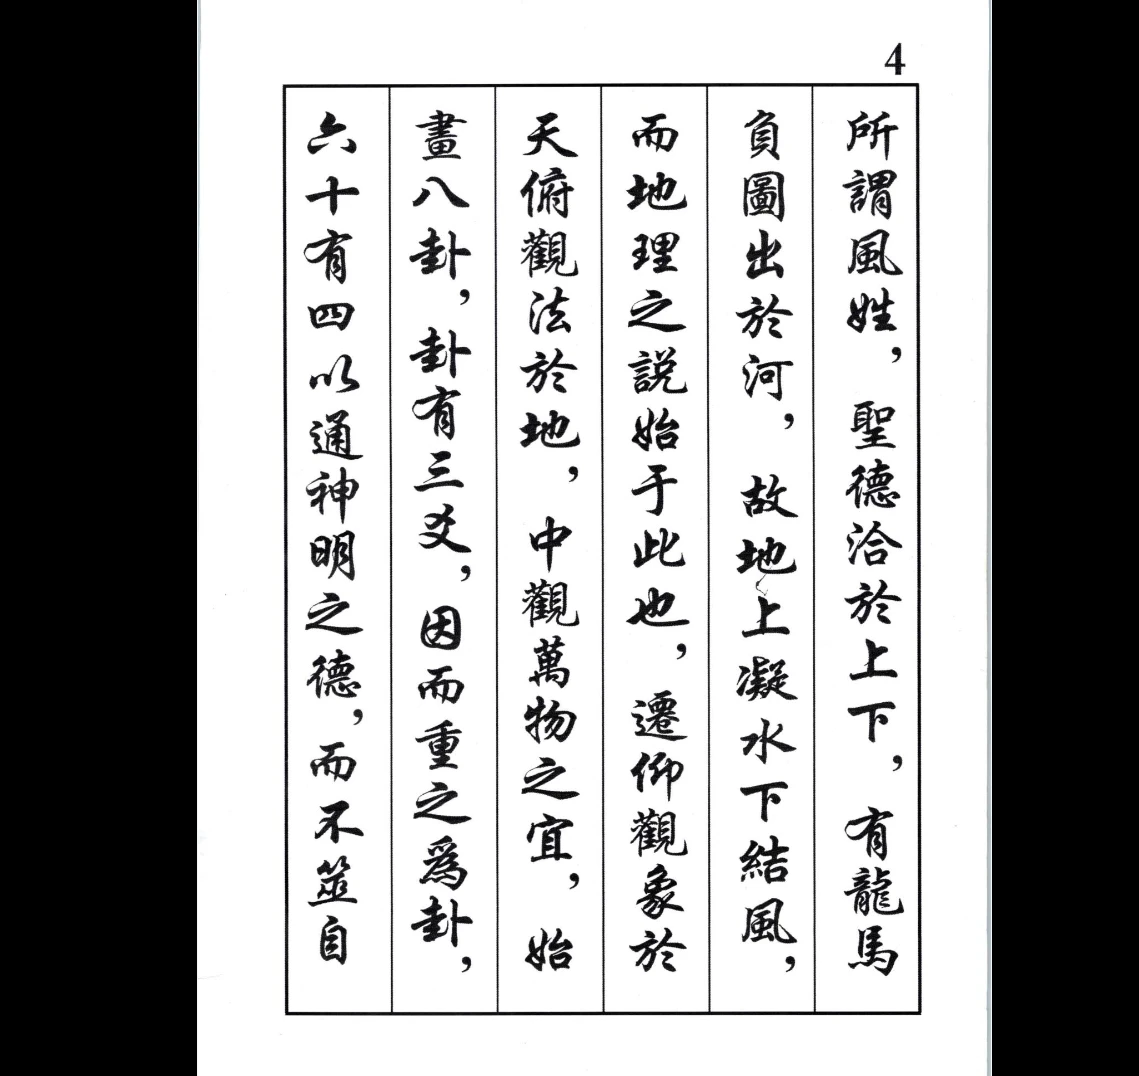 4
所謂風姓，聖德洽於上下，有龍馬
負圖出於河，故地上凝水下結風，
而地理之説始于此也，遷仰觀象於
天俯觀法於地，中觀萬物之宜，始
畫八卦，卦有三爻，因而重之爲卦，
六十有四以通神明之德，而不筮自